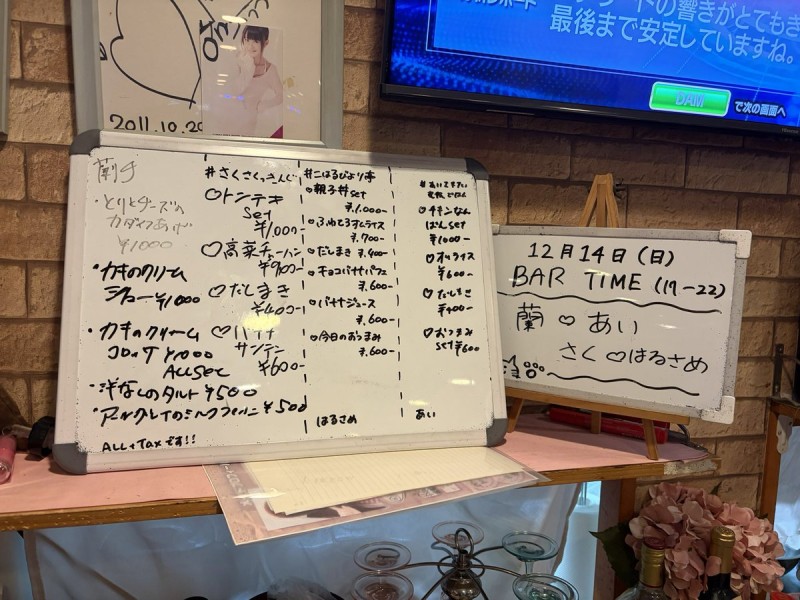 2011.10.29
最後まで安定していますね。
DAM
で次の画面へ
¥1000
・カキのクリーム
シチュー¥1000
・カキのクリーム
コロッケ ¥1000
ALL SET
・洋なしのタルト ¥500
¥500
ALL+Taxです!!
♡トンテキ
Set
¥1,000-
♡高菜チャーハン
¥900-
♡だしまき
¥400-
♡バナナ
サンデー
¥600-
#こはるびより亭
♡親子丼set
¥1,000-
♡ふわとろオムライス
¥.900-
♡だしまき ¥.400-
♡チョコバナナパフェ
¥.600-
♡バナナジュース
¥.600-
♡今日のおつまみ
¥.600-
はるさめ
♡チキンなん
ばんset
¥1000-
♡オムライス
¥600-
♡だしまき
¥400-
♡おつまみ
set ¥600
あい
12月14日(日)
BAR TIME (19-22)
蘭♡あい
さく♡はるさめ